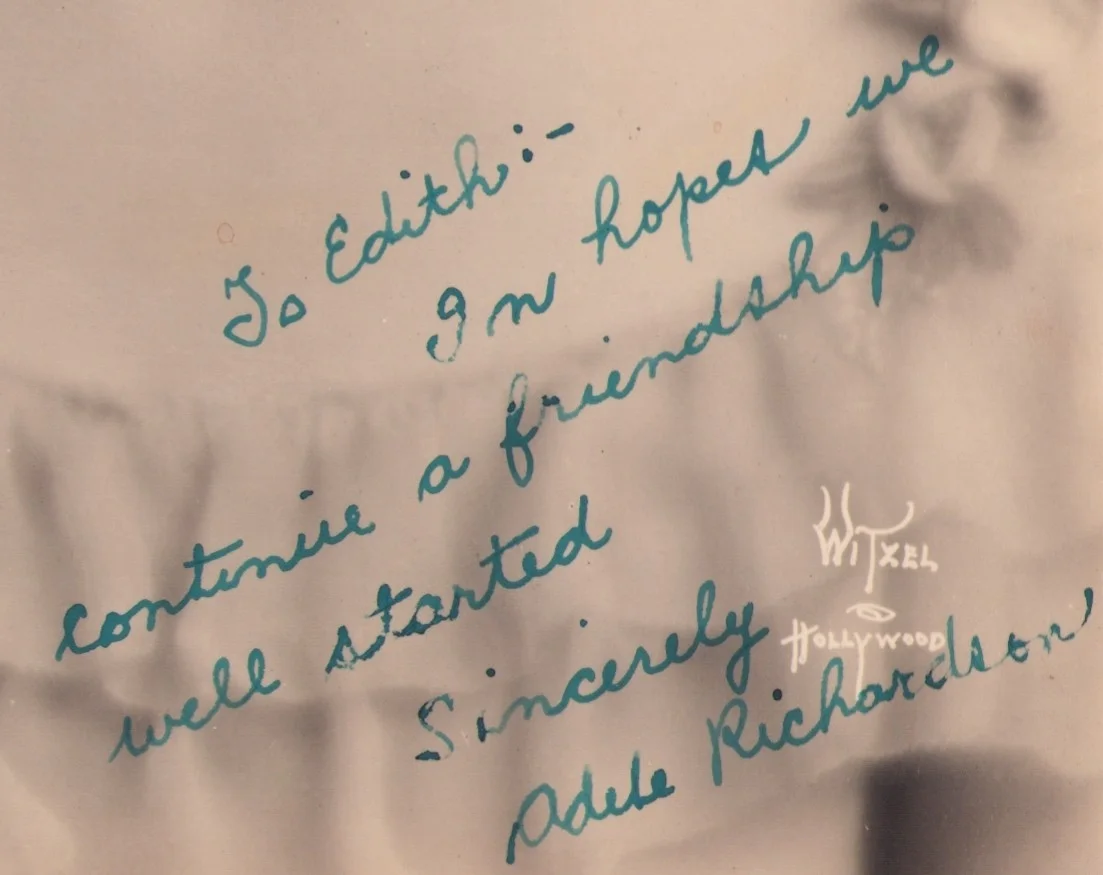 To Edith:-
In hopes we
continue a friendship
well started
Sincerely
Adele Richardson
WITXEL
HOLLYWOOD